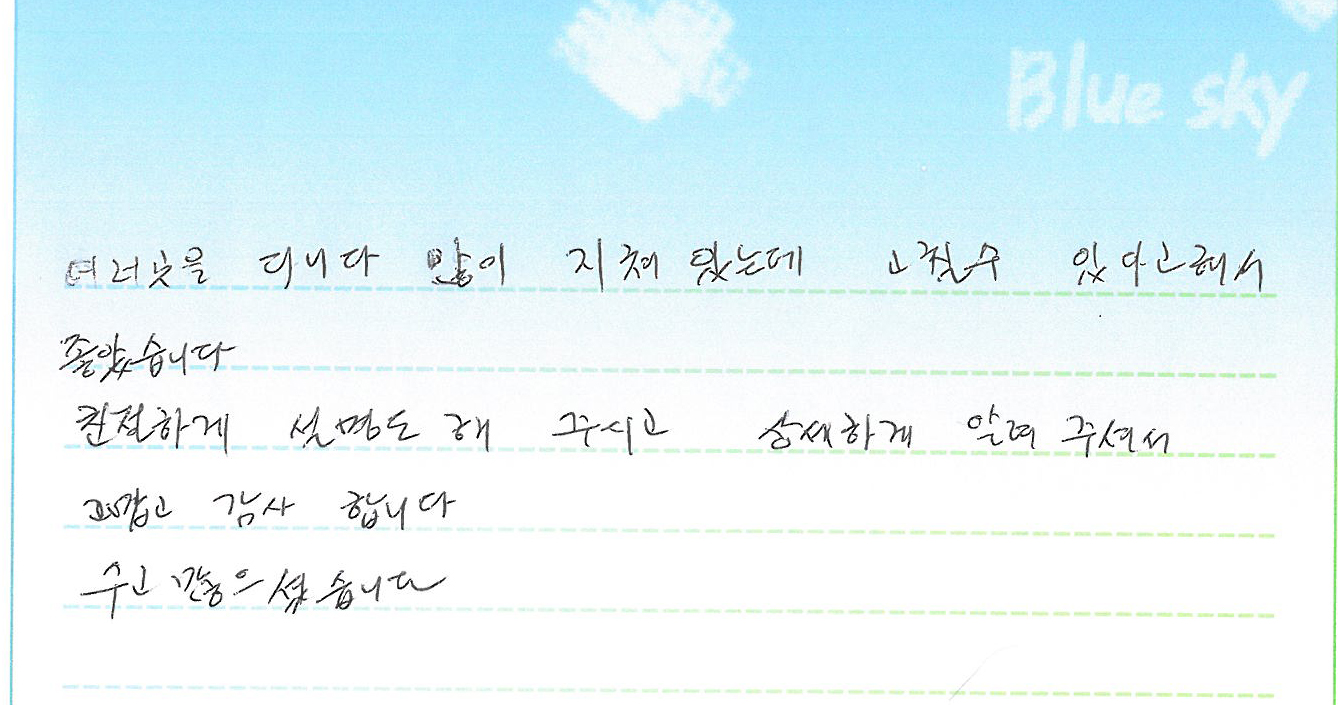 Blue sky
여러곳을 디니다 많이 지쳐 있는데 고칠수 있다고해서
좋았습니다
친절하게 설명도 해 주시고 상세하게 알려 주셔서
고맙고 감사 합니다
수고 많으셨습니다